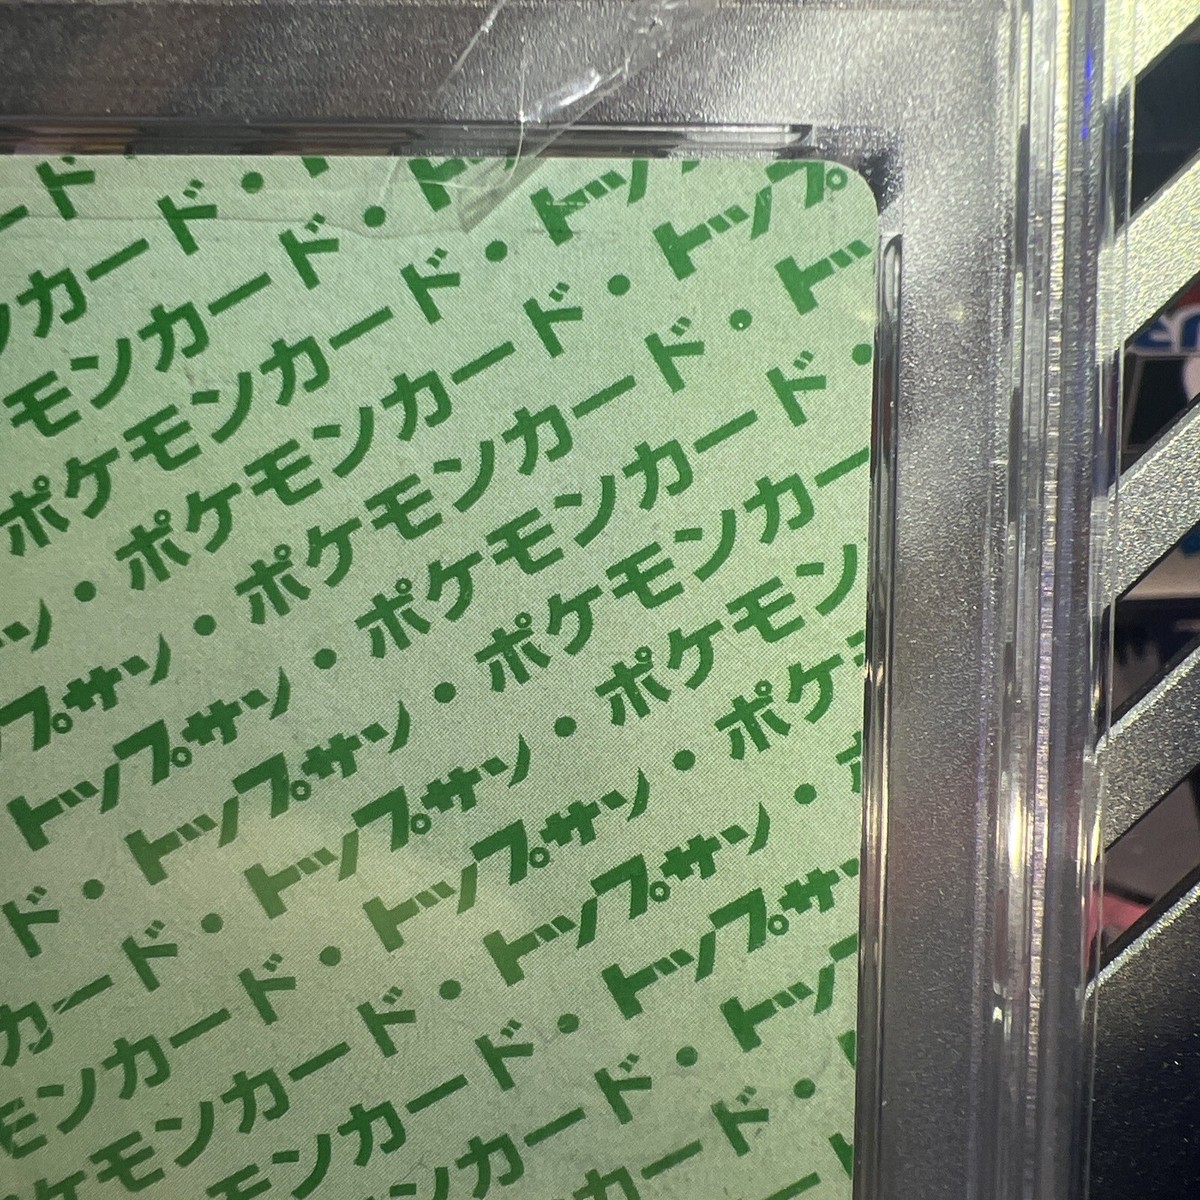 ード
ンカード・ト
モンカード・ト
ポケモンカード・トッ
ン・ポケモンカード・トップ
プサン・ポケモンカード・トッ
トップサン・ポケモンカード・
ド・トップサン・ポケモンカー
カード・トップサン・ポケモン
モンカード・トップサン・ポケ
ケモンカード・トップサン・
モンカード・トップサン
カード・トッ
ード・